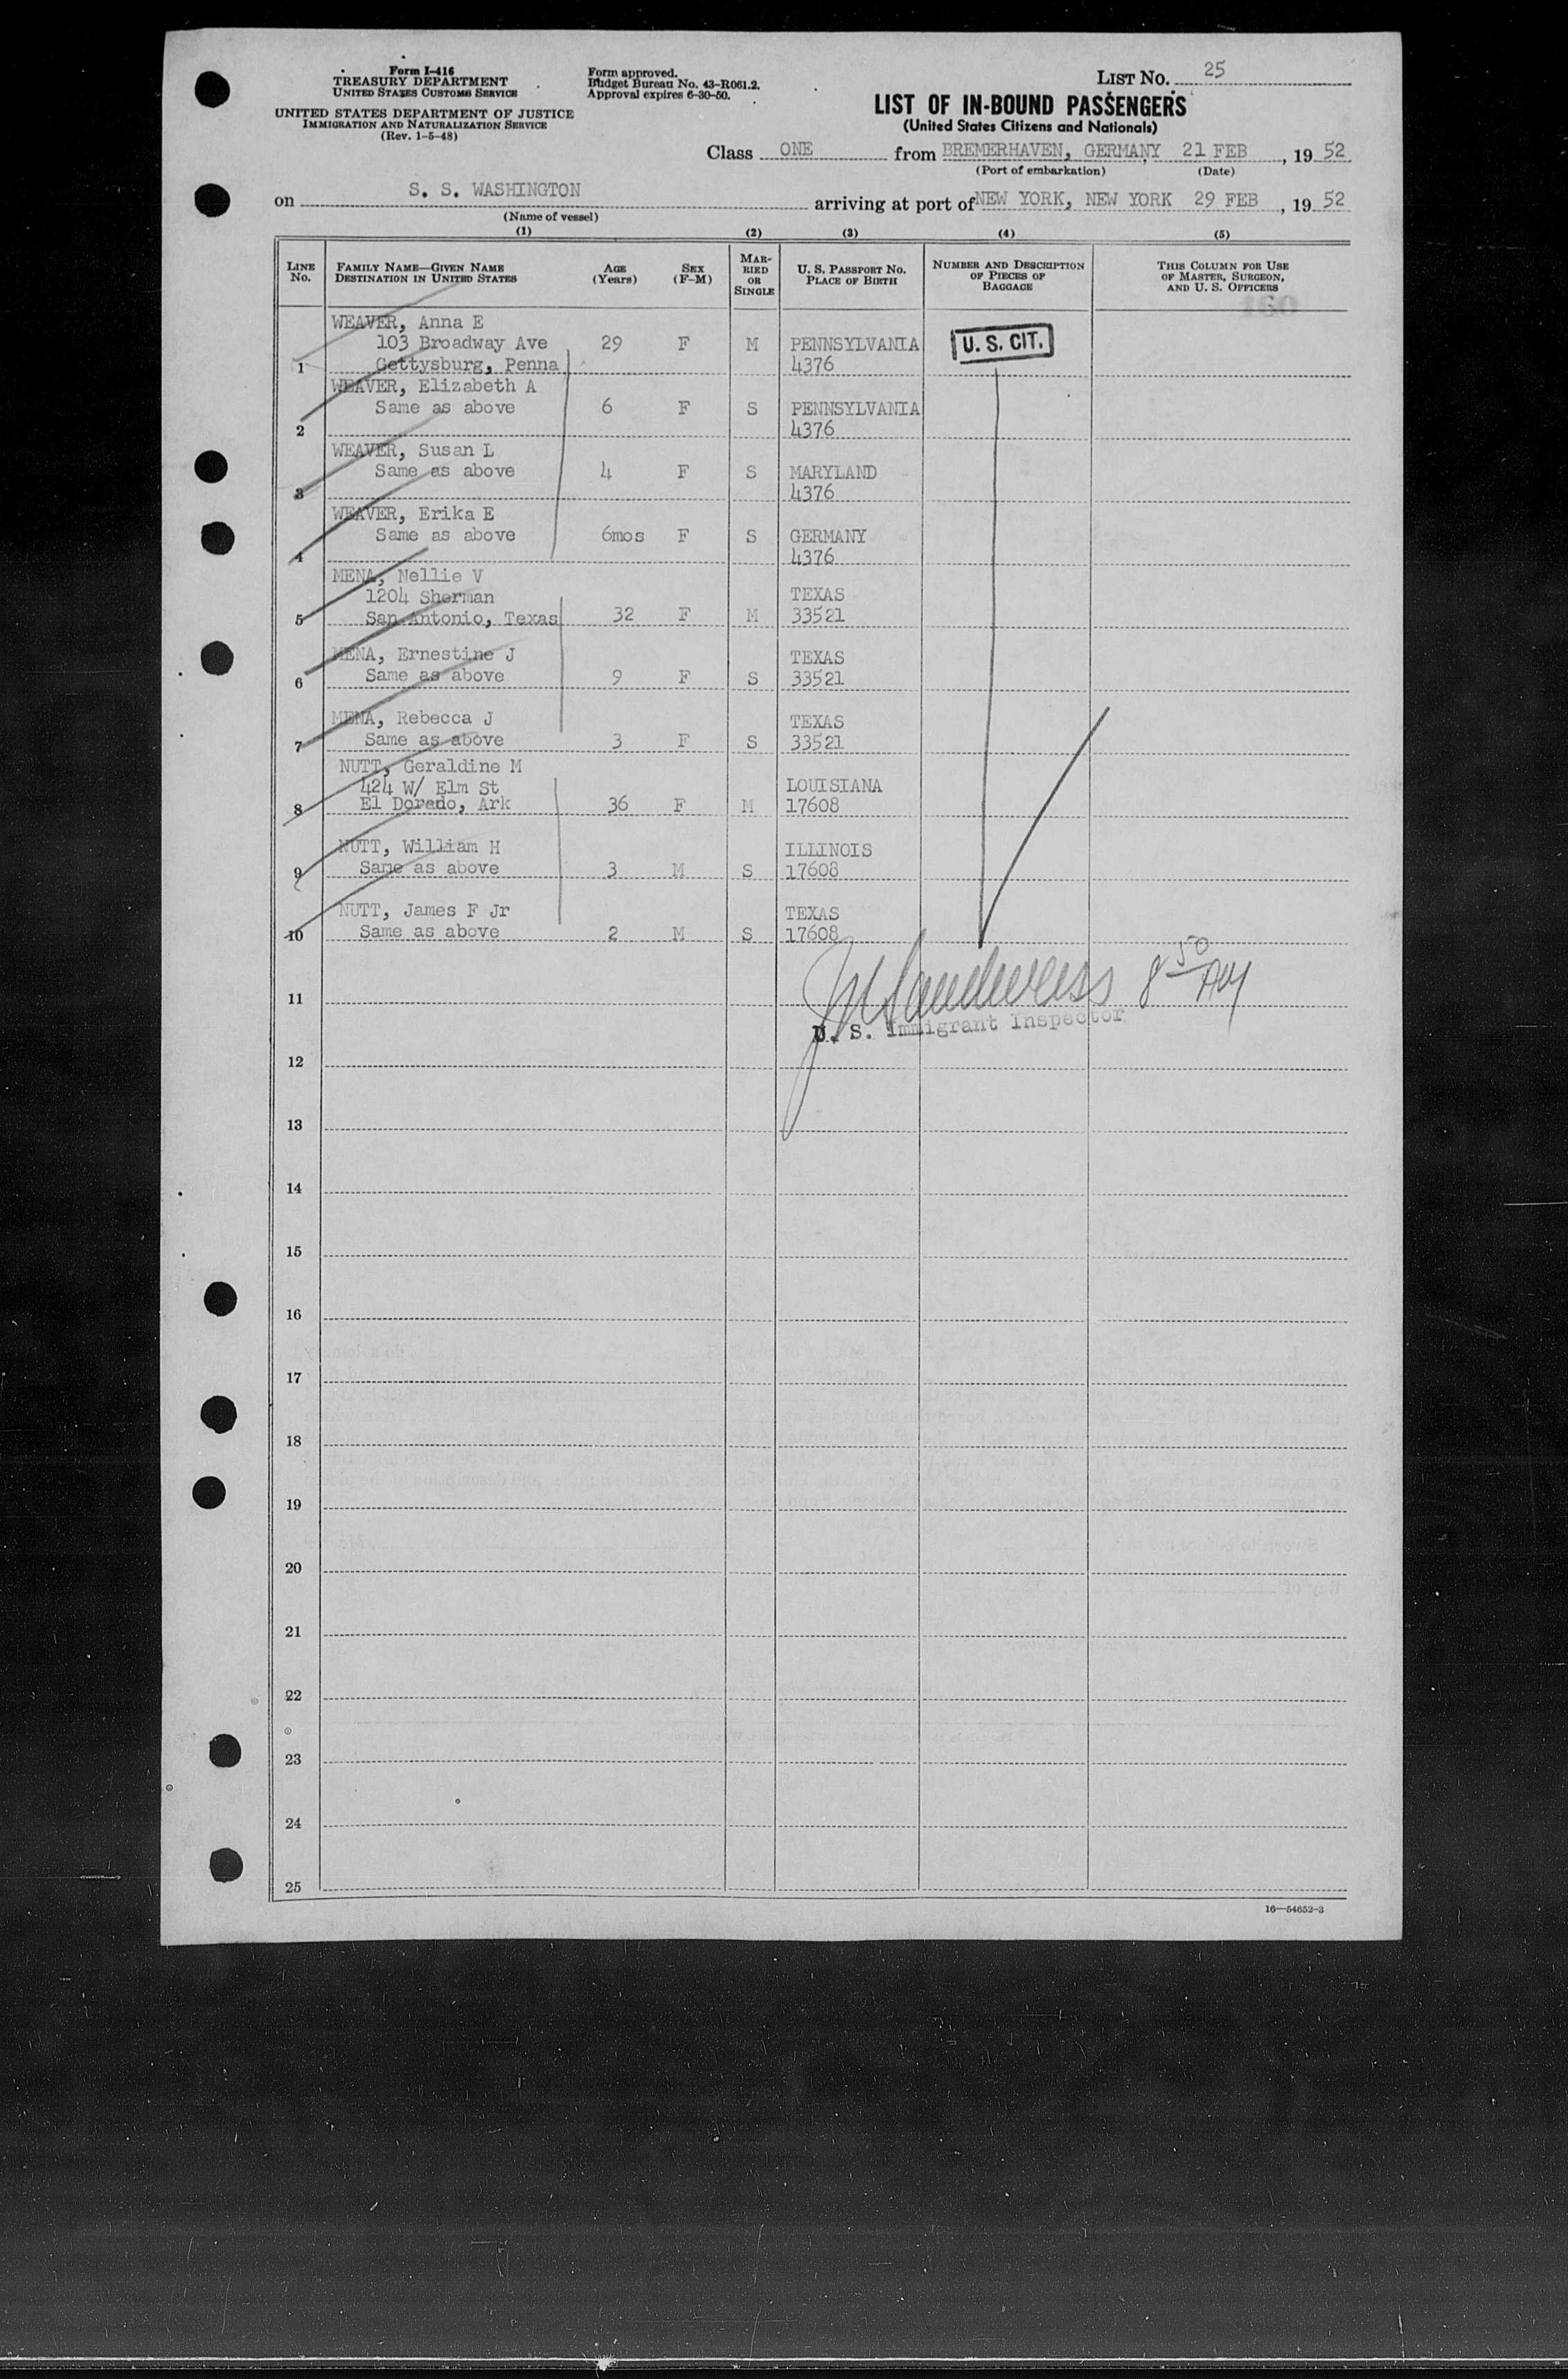 Form I-416
TREASURY DEPARTMENT
UNITED STATES CUSTOMS SERVICE
UNITED STATES DEPARTMENT OF JUSTICE
IMMIGRATION AND NATURALIZATION SERVICE
(Rev. 1-5-48)
Form approved.
Budget Bureau No. 43-R061.2.
Approval expires 6-30-50.
LIST NO. 25
LIST OF IN-BOUND PASSENGERS
(United States Citizens and Nationals)
Class ONE from BREMERHAVEN, GERMANY 21 FEB, 19 52
(Port of embarkation) (Date)
on S. S. WASHINGTON arriving at port of NEW YORK, NEW YORK 29 FEB, 19 52
(Name of vessel)
(1) (2) (3) (4) (5)
LINE NO.
FAMILY NAME—GIVEN NAME
DESTINATION IN UNITED STATES
AGE (Years)
SEX (F-M)
MARRIED OR SINGLE
U. S. PASSPORT NO.
PLACE OF BIRTH
NUMBER AND DESCRIPTION OF PIECES OF BAGGAGE
THIS COLUMN FOR USE OF MASTER, SURGEON, AND U. S. OFFICERS
160
WEAVER, Anna E
103 Broadway Ave 29 F M PENNSYLVANIA U. S. CIT.
1 Gettysburg, Penna 4376
WEAVER, Elizabeth A
Same as above 6 F S PENNSYLVANIA
2 4376
WEAVER, Susan L
Same as above 4 F S MARYLAND
3 4376
WEAVER, Erika E
Same as above 6mos F S GERMANY
4 4376
MENA, Nellie V
1204 Sherman TEXAS
5 San Antonio, Texas 32 F M 33521
MENA, Ernestine J TEXAS
6 Same as above 9 F S 33521
MENA, Rebecca J TEXAS
7 Same as above 3 F S 33521
NUTT, Geraldine M
424 W/ Elm St LOUISIANA
8 El Dorado, Ark 36 F M 17608
NUTT, William H ILLINOIS
9 Same as above 3 M S 17608
NUTT, James F Jr TEXAS
10 Same as above 2 M S 17608
11
U. S. Immigrant Inspector
12
13
14
15
16
17
18
19
20
21
22
23
24
25
16—54652-3